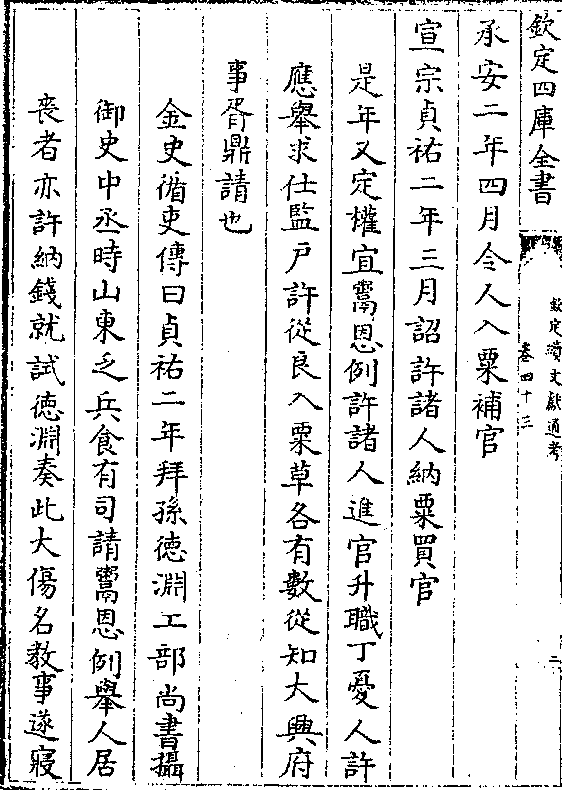 欽定四庫全書
欽定續文獻通考
卷四十三
二
承安二年四月令人入粟補官
宣宗貞祐二年三月詔許諸人納粟買官
是年又定權宜鬻恩例許諸人進官升職丁憂人許
應舉求仕監戶許從良入粟草各有數從知大興府
事胥鼎請也
金史循吏傳曰貞祐二年拜孫徳淵工部尚書攝
御史中丞時山東乏兵食有司請鬻恩例舉人居
喪者亦許納錢就試徳淵奏此大傷名教事遂寢